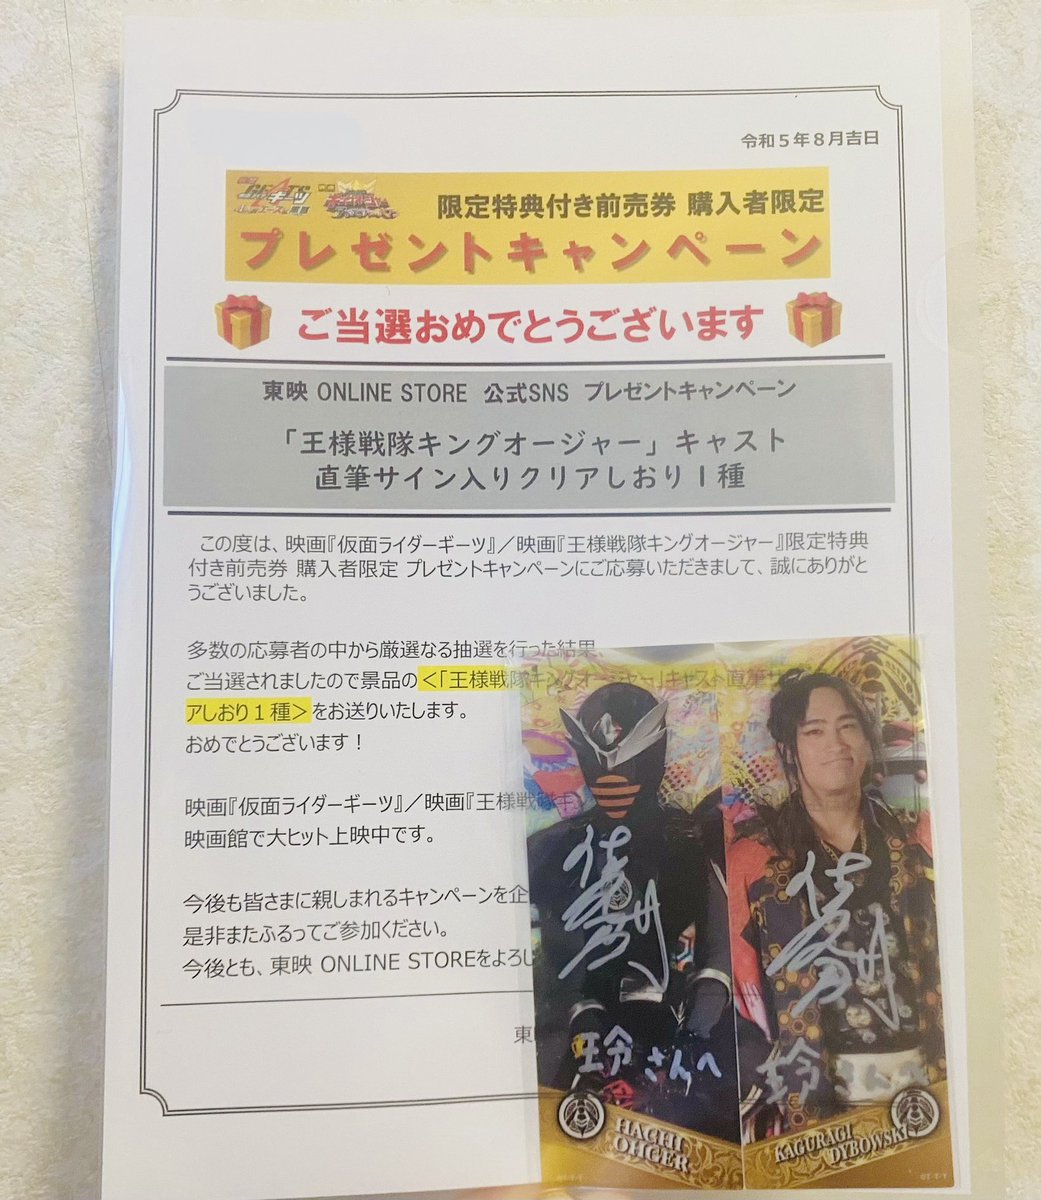 令和５年８月吉日
ギーツ
限定特典付き前売券 購入者限定
プレゼントキャンペーン
ご当選おめでとうございます
東映 ONLINE STORE 公式SNS プレゼントキャンペーン
「王様戦隊キングオージャー」キャスト
直筆サイン入りクリアしおり１種
この度は、映画『仮面ライダーギーツ』／映画『王様戦隊キングオージャー』限定特典
付き前売券 購入者限定 プレゼントキャンペーンにご応募いただきまして、誠にありがと
うございました。
多数の応募者の中から厳選なる抽選を行った結果、
ご当選されましたので景品の＜「王様戦隊キングオージャー」キャスト直筆サ
アしおり１種＞をお送りいたします。
おめでとうございます！
映画『仮面ライダーギーツ』／映画『王様戦隊キ
映画館で大ヒット上映中です。
今後も皆さまに親しまれるキャンペーンを企
是非またふるってご参加ください。
今後とも、東映 ONLINE STOREをよろし
東
玲さんへ
玲さんへ
HACHI
OHGER
KAGURAGI
DYBOWSKI